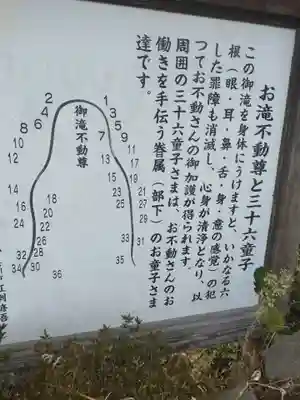 お滝不動尊と三十六童子
この御滝を身体にうけますと、いかなる六
根(眼・耳・鼻・舌・身・意の感覚)の犯
した罪障も消滅し、心身が清浄となり、以
つてお不動さんの御加護が得られます。
周囲の三十六童子さまは、お不動さんのお
働きを手伝う眷属(部下)のお童子さま
達です。
御滝不動尊
2
1
4
3
6
5
8
7
9
10
11
12
13
14
15
16
17
18
19
20
21
22
23
24
25
26
27
28
29
30
31
32
33
34
35
36